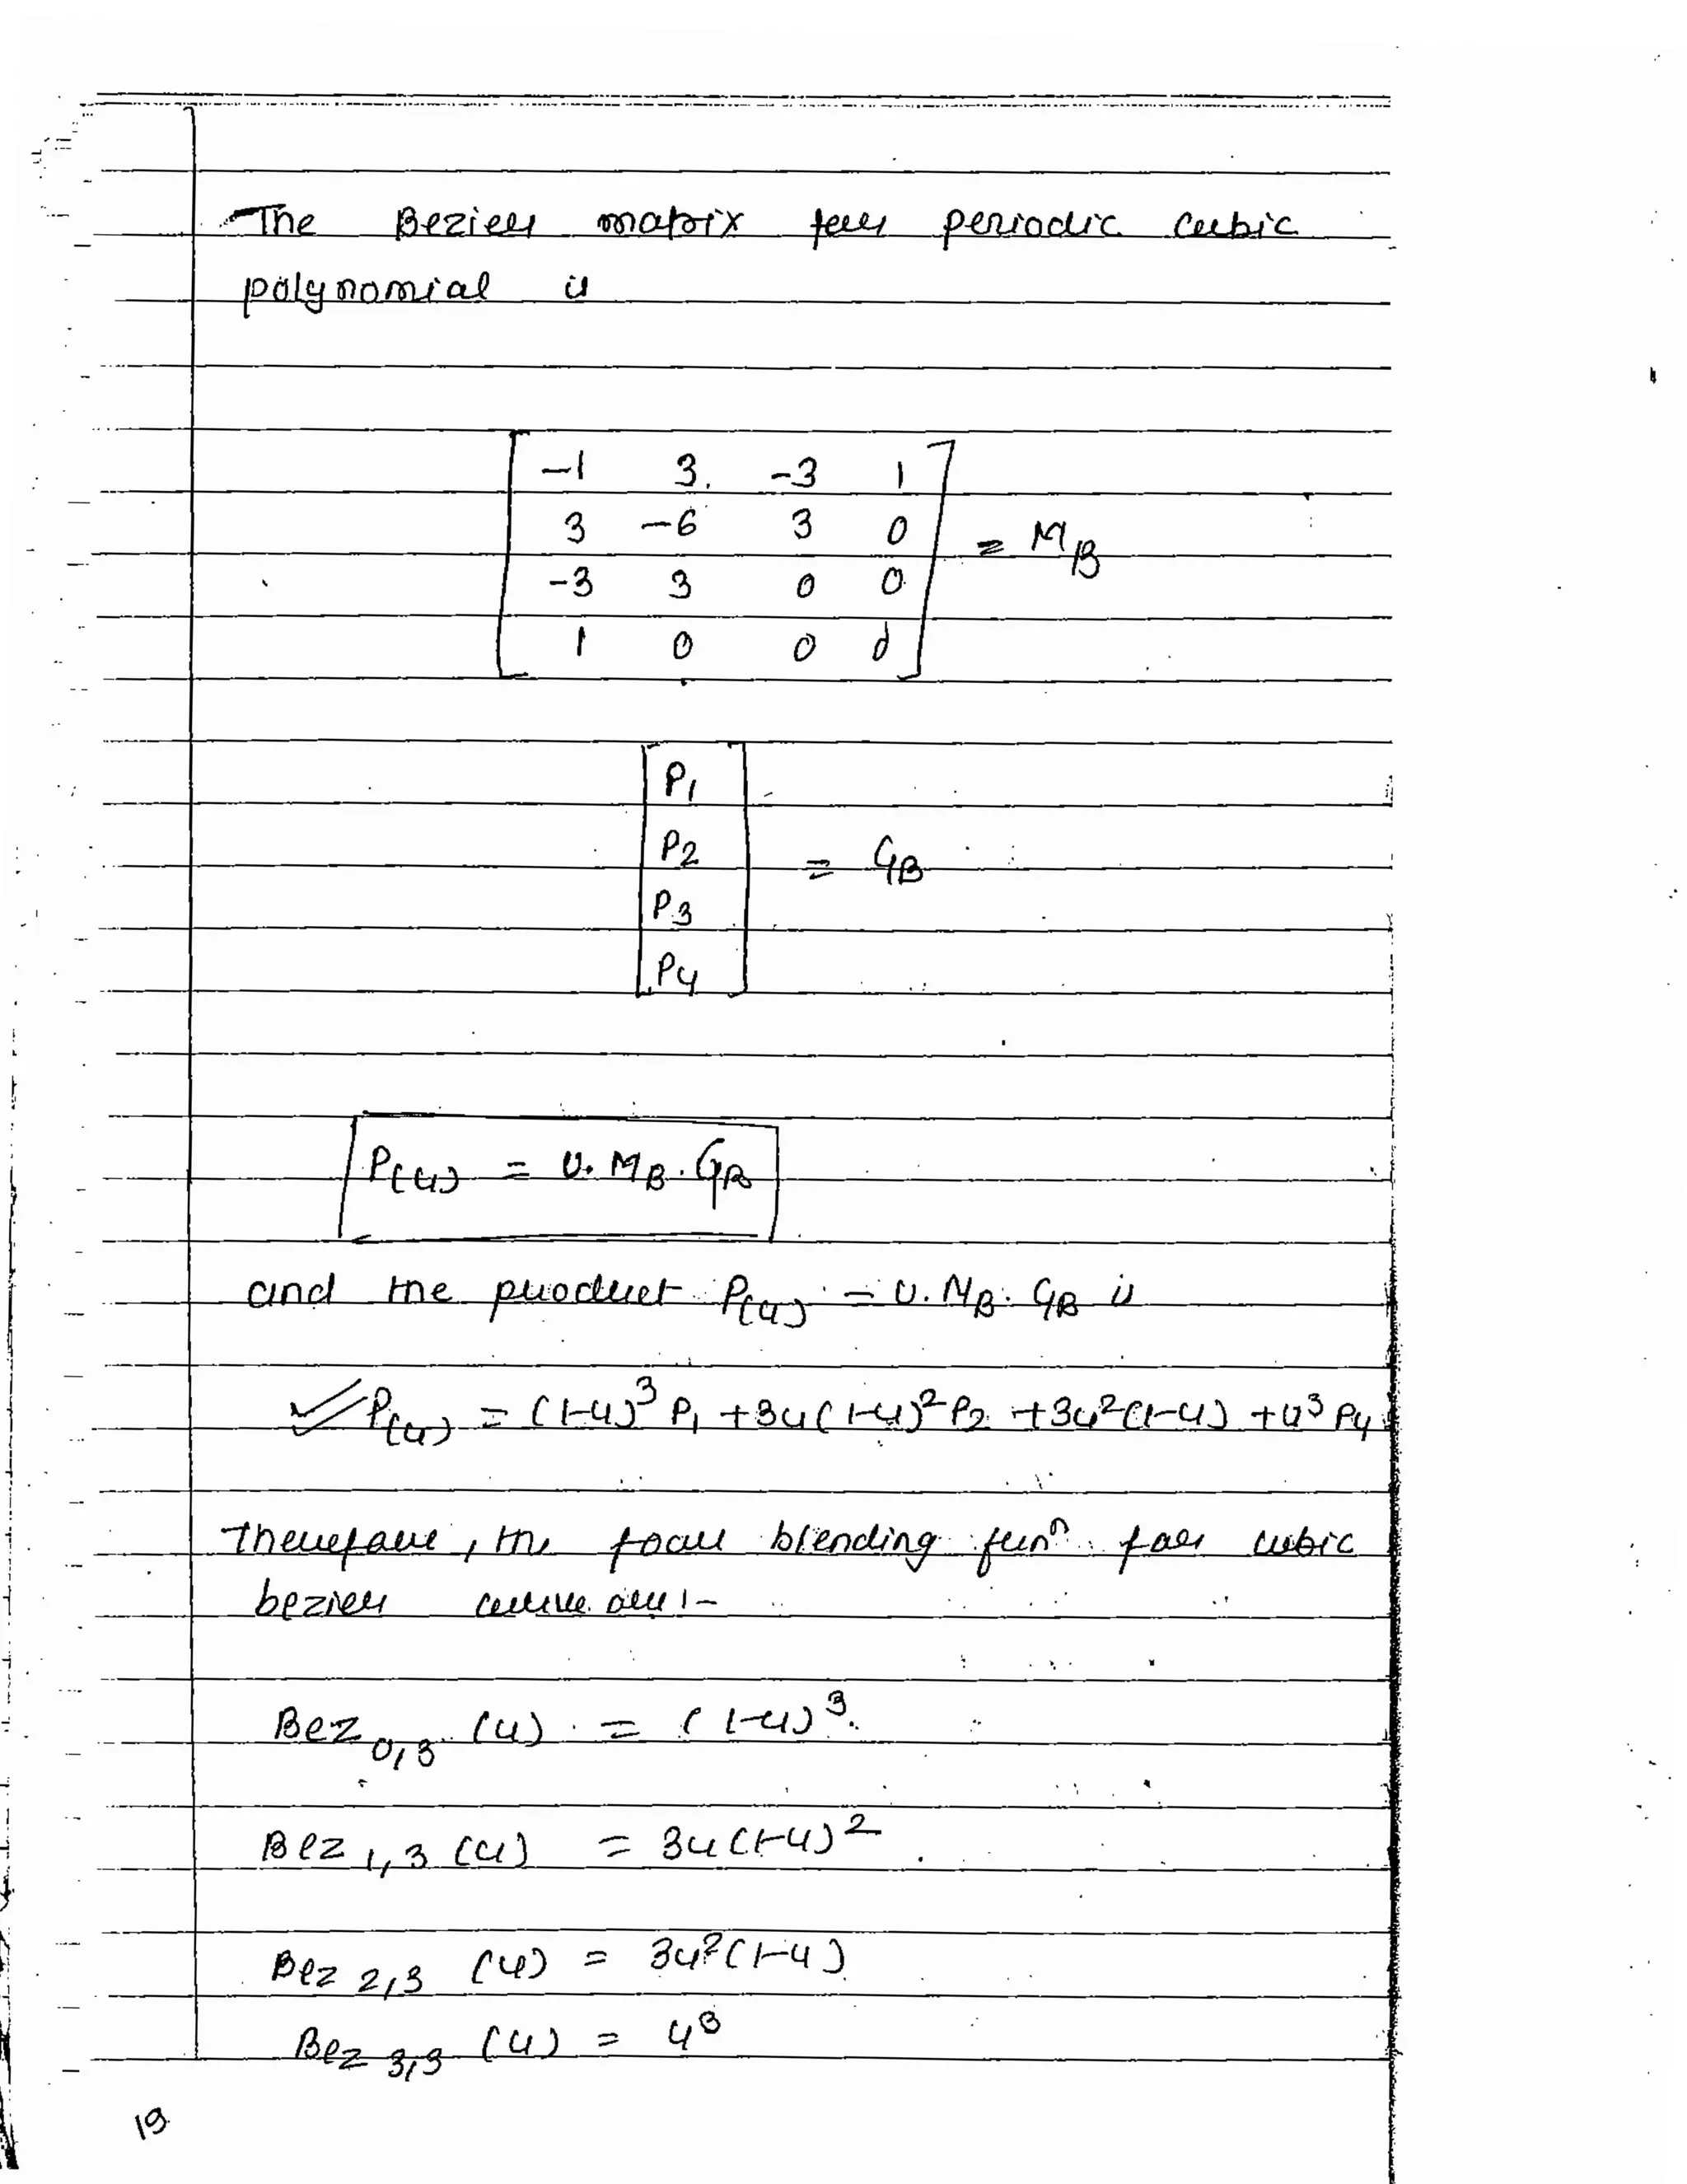 The Bezier matrix for periodic cubic
polynomial is
-1 3 -3 1
3 -6 3 0
-3 3 0 0
1 0 0 0
= MB
P1
P2
P3
P4
= GB
P(u) = U. MB. GB
and the product P(u) = U. MB. GB is
P(u) = (1-u)³ P1 + 3u(1-u)² P2 + 3u²(1-u) + u³ P4
Therefore, the four blending funⁿ for cubic
bezier curve are :-
Bez 0,3 (u) = (1-u)³.
Bez 1,3 (u) = 3u(1-u)²
Bez 2,3 (u) = 3u²(1-u)
Bez 3,3 (u) = u³
19